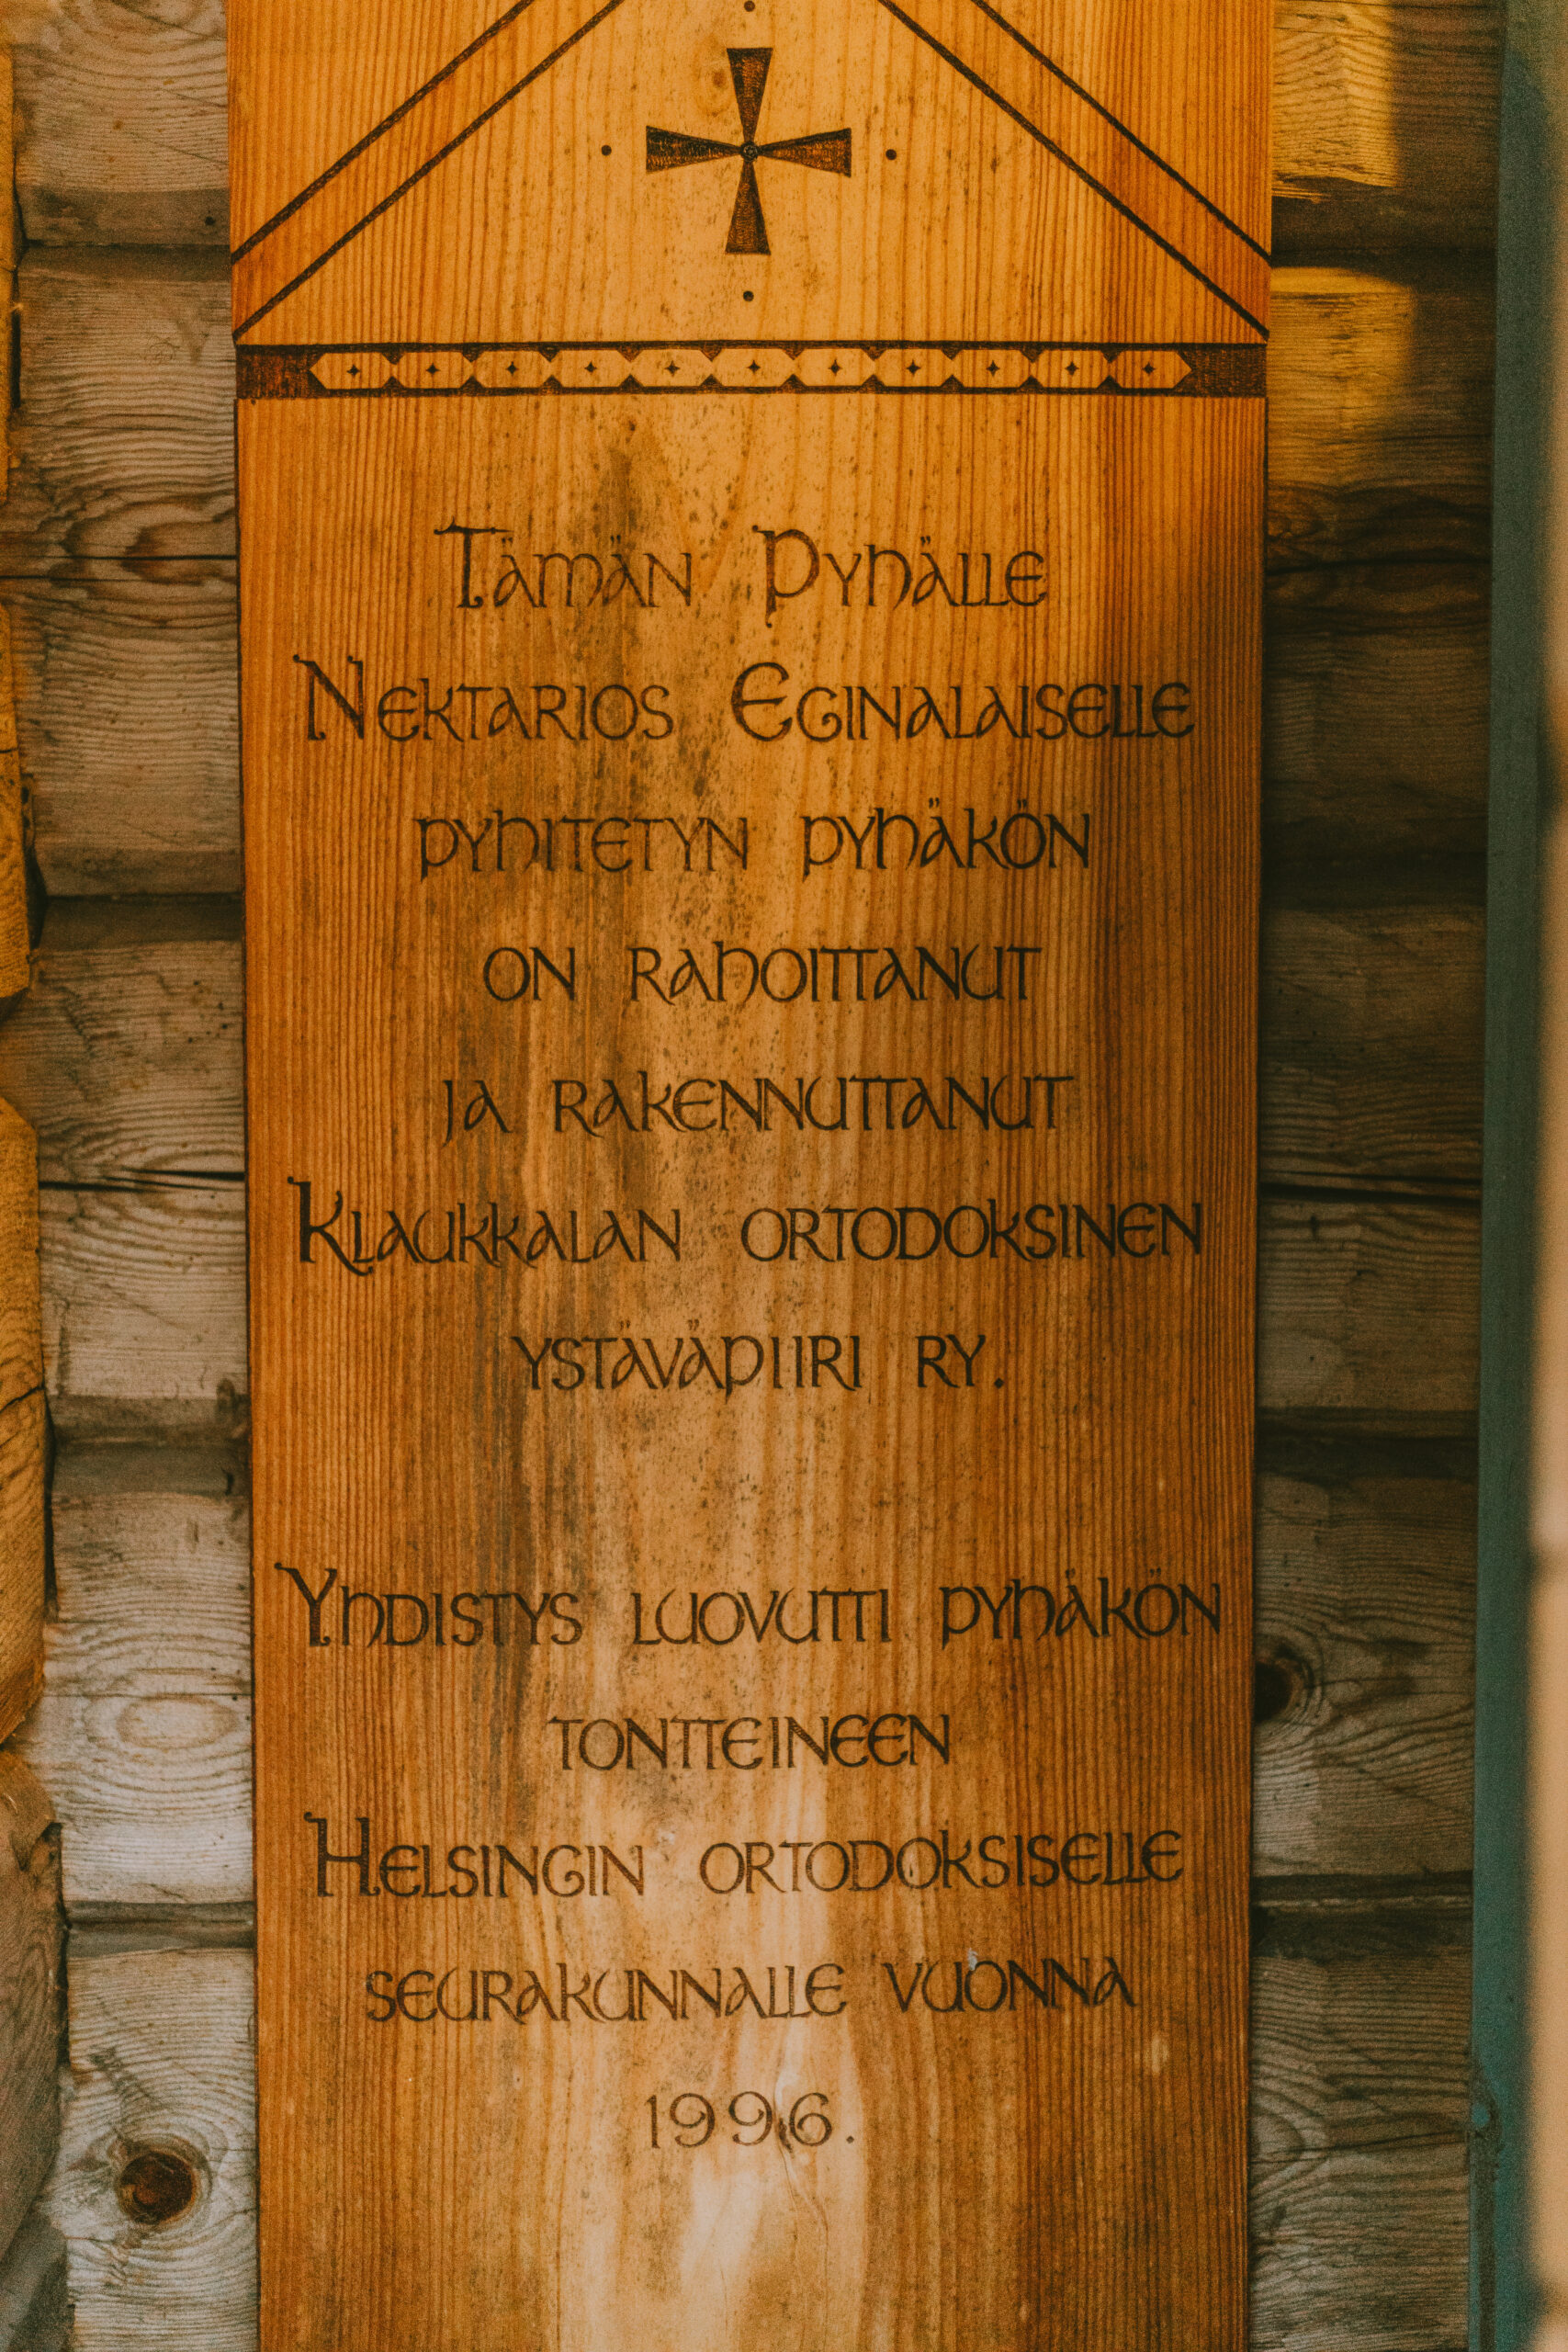 Tämän Pyhälle
Nektarios Eginalaiselle
pyhitetyn pyhäkön
on rahoittanut
ja rakennuttanut
Klaukkalan ortodoksinen
ystäväpiiri ry.
Yhdistys luovutti pyhäkön
tontteineen
Helsingin ortodoksiselle
seurakunnalle vuonna
1996.